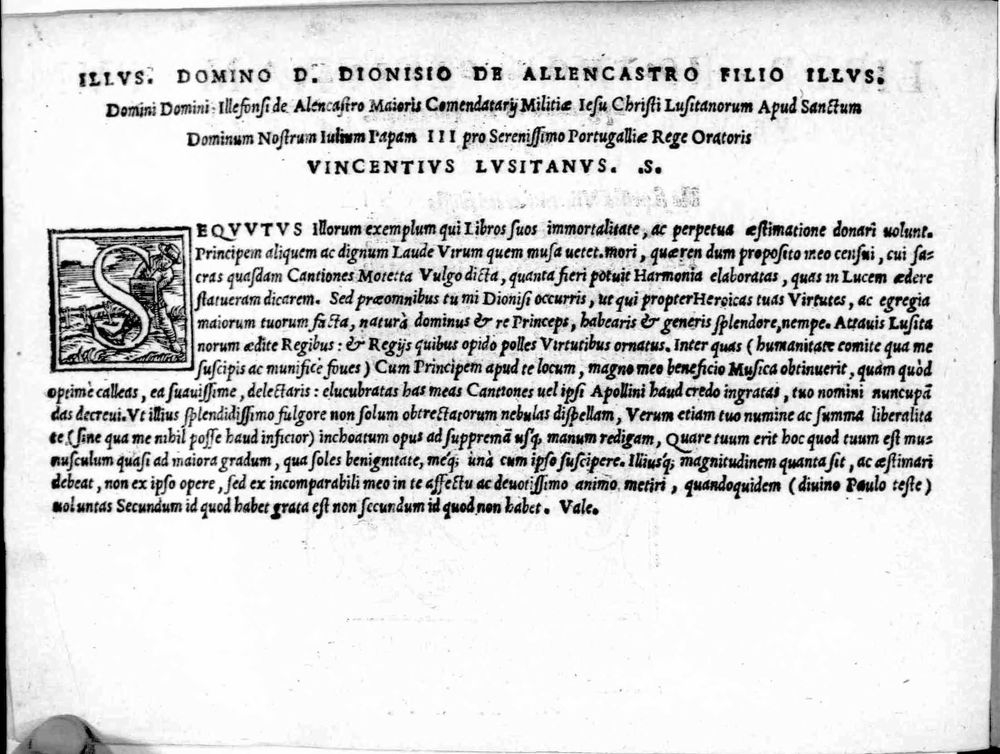 ILLVS. DOMINO D. DIONISIO DE ALLENCASTRO FILIO ILLVS.
Domini Domini: Illefonsi de Alencastro Maioris Comendatarij Militiæ Iesu Christi Lusitanorum Apud Sanctum
Dominum Nostrum Iulium Papam III pro Serenissimo Portugalliæ Rege Oratoris
VINCENTIVS LVSITANVS. .S.
SEQVVTVS Illorum exemplum qui Libros suos immortalitate, ac perpetua æstimatione donari uolunt.
Principem aliquem ac dignum Laude Virum quem musa uetet.mori, quæren dum proposito meo censui, cui sa-
cras quasdam Cantiones Motetta Vulgo dicta, quanta fieri potuit Harmonia elaboratas, quas in Lucem ædere
statueram dicarem. Sed præomnibus tu mi Dionisi occurris, ut qui propterHeroicas tuas Virtutes, ac egregia
maiorum tuorum facta, naturà dominus & re Princeps, habearis & generis splendore,nempe. Attauis Lusita
norum ædite Regibus: & Regijs quibus opido polles Virtutibus ornatus. Inter quas (humanitate comite qua me
suscipis ac munificè foues) Cum Principem apud te locum, magno meo beneficio Musica obtinuerit, quàm quòd
optimè calleas, ea suauissime, delectaris: elucubratas has meas Cantiones uel ipsi Apollini haud credo ingratas, tuo nomini nuncupã
das decreui. Vt illius splendidissimo fulgore non solum obtrectatorum nebulas dispellam, Verum etiam tuo numine ac summa liberalita
te (sine qua me nihil posse haud inficior) inchoatum opus ad suppremã usq́; manum redigam, Quare tuum erit hoc quod tuum est mu-
nusculum quasi ad maiora gradum, qua soles benignitate, méq́; unà cum ipso suscipere. Illiusq́; magnitudinem quanta sit, ac æstimari
debeat, non ex ipso opere, sed ex incomparabili meo in te affectu ac deuotissimo animo metiri, quandoquidem (diuino Paulo teste)
uoluntas Secundum id quod habet grata est non secundum id quod non habet. Vale.